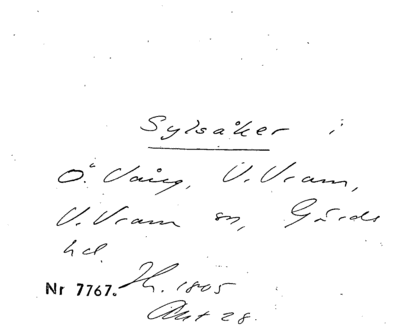 Sylsåker i
Ö. Vång, V. Vram,
V. Vram sn, Gärds
hd.
Nr 7767. Th. 1805
Akt 28.